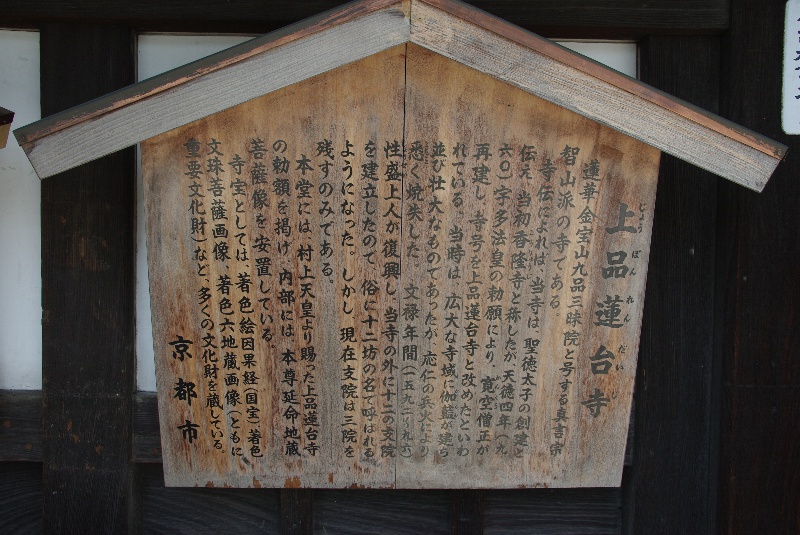 上品蓮台寺
じょう ぼん れん だい じ
蓮華金宝山九品三昧院と号する真言宗
智山派の寺である。
寺伝によれば、当寺は、聖徳太子の創建と
伝え、当初香隆寺と称したが、天徳四年(九
六〇)宇多法皇の勅願により、寛空僧正が
再建し、寺号を上品蓮台寺と改めたといわ
れている。当時は、広大な寺域に伽藍が建ち
並び壮大なものであったが、応仁の兵火により
悉く焼失した。文禄年間(一五九二~九六)
性盛上人が復興し、当寺の外に十二の支院
を建立したので、俗に十二坊の名で呼ばれる
ようになった。しかし、現在支院は三院を
残すのみである。
本堂には、村上天皇より賜った上品蓮台寺
の勅額を掲げ、内部には、本尊延命地蔵
菩薩像を安置している。
寺宝としては、著色絵因果経(国宝)著色
文殊菩薩画像、著色六地蔵画像(ともに
重要文化財)など、多くの文化財を蔵している。
京都市